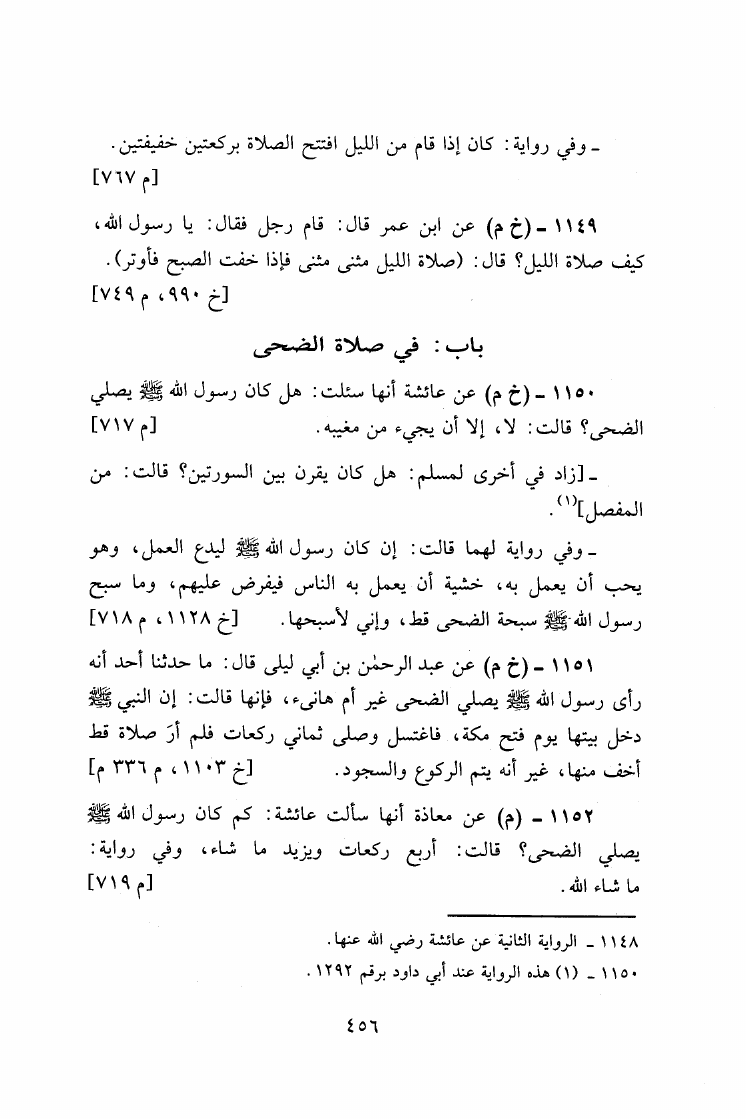 ـ وفي رواية: كان إذا قام من الليل افتتح الصلاة بركعتين خفيفتين.
[م ٧٦٧]
١١٤٩ ـ (خ م) عن ابن عمر قال: قام رجل فقال: يا رسول الله،
كيف صلاة الليل؟ قال: (صلاة الليل مثنى مثنى فإذا خفت الصبح فأوتر).
[خ ٩٩٠، م ٧٤٩]
باب: في صلاة الضحى
١١٥٠ ـ (خ م) عن عائشة أنها سئلت: هل كان رسول الله ﷺ يصلي
الضحى؟ قالت: لا، إلا أن يجيء من مغيبه. [م ٧١٧]
ـ [زاد في أخرى لمسلم: هل كان يقرن بين السورتين؟ قالت: من
المفصل](١).
ـ وفي رواية لهما قالت: إن كان رسول الله ﷺ ليدع العمل، وهو
يحب أن يعمل به، خشية أن يعمل به الناس فيفرض عليهم، وما سبح
رسول الله ﷺ سبحة الضحى قط، وإني لأسبحها. [خ ١١٢٨، م ٧١٨]
١١٥١ ـ (خ م) عن عبد الرحمٰن بن أبي ليلى قال: ما حدثنا أحد أنه
رأى رسول الله ﷺ يصلي الضحى غير أم هانىء، فإنها قالت: إن النبي ﷺ
دخل بيتها يوم فتح مكة، فاغتسل وصلى ثماني ركعات فلم أرَ صلاة قط
أخف منها، غير أنه يتم الركوع والسجود. [خ ١١٠٣، م ٣٣٦ م]
١١٥٢ ـ (م) عن معاذة أنها سألت عائشة: كم كان رسول الله ﷺ
يصلي الضحى؟ قالت: أربع ركعات ويزيد ما شاء، وفي رواية:
ما شاء الله. [م ٧١٩]
١١٤٨ ـ الرواية الثانية عن عائشة رضي الله عنها.
١١٥٠ ـ (١) هذه الرواية عند أبي داود برقم ١٢٩٢.
٤٥٦